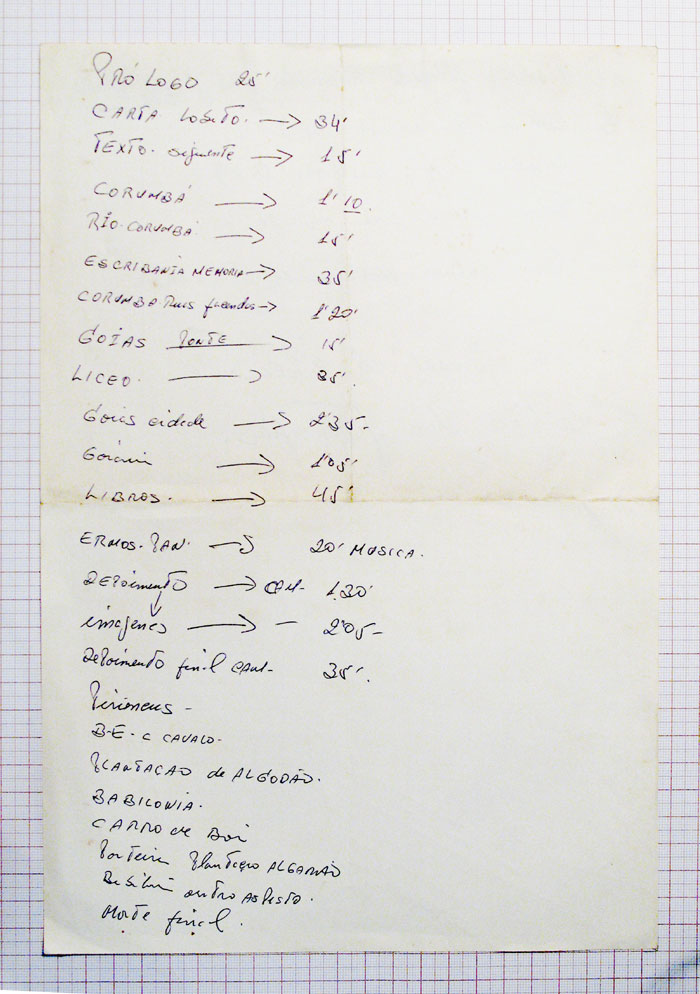 PRÓLOGO 25'
CARTA LOBITO. → 34'
TEXTO. siguiente → 15'
CORUMBÁ → 1'10.
RÍO-CORUMBÁ → 15'
ESCRIBANIA MEMORIA → 35'
CORUMBA 1'20'
GOIAS PONTE → 15'
LICEO. → 35'.
Goias cidade → 2'35-
1'05'
LIBROS. → 45'
ERMOS. → 20' MUSICA.
DEPoimento → 1.30'
imagenes → - 2'05-
DEPoimento final 35'.
Pirineus -
B-E-C CAVALO-
PLANTAÇAO de ALGODÃO.
BABILONIA.
CARRO de Boi
Porteira
outro ASPESTO.
Morte final.